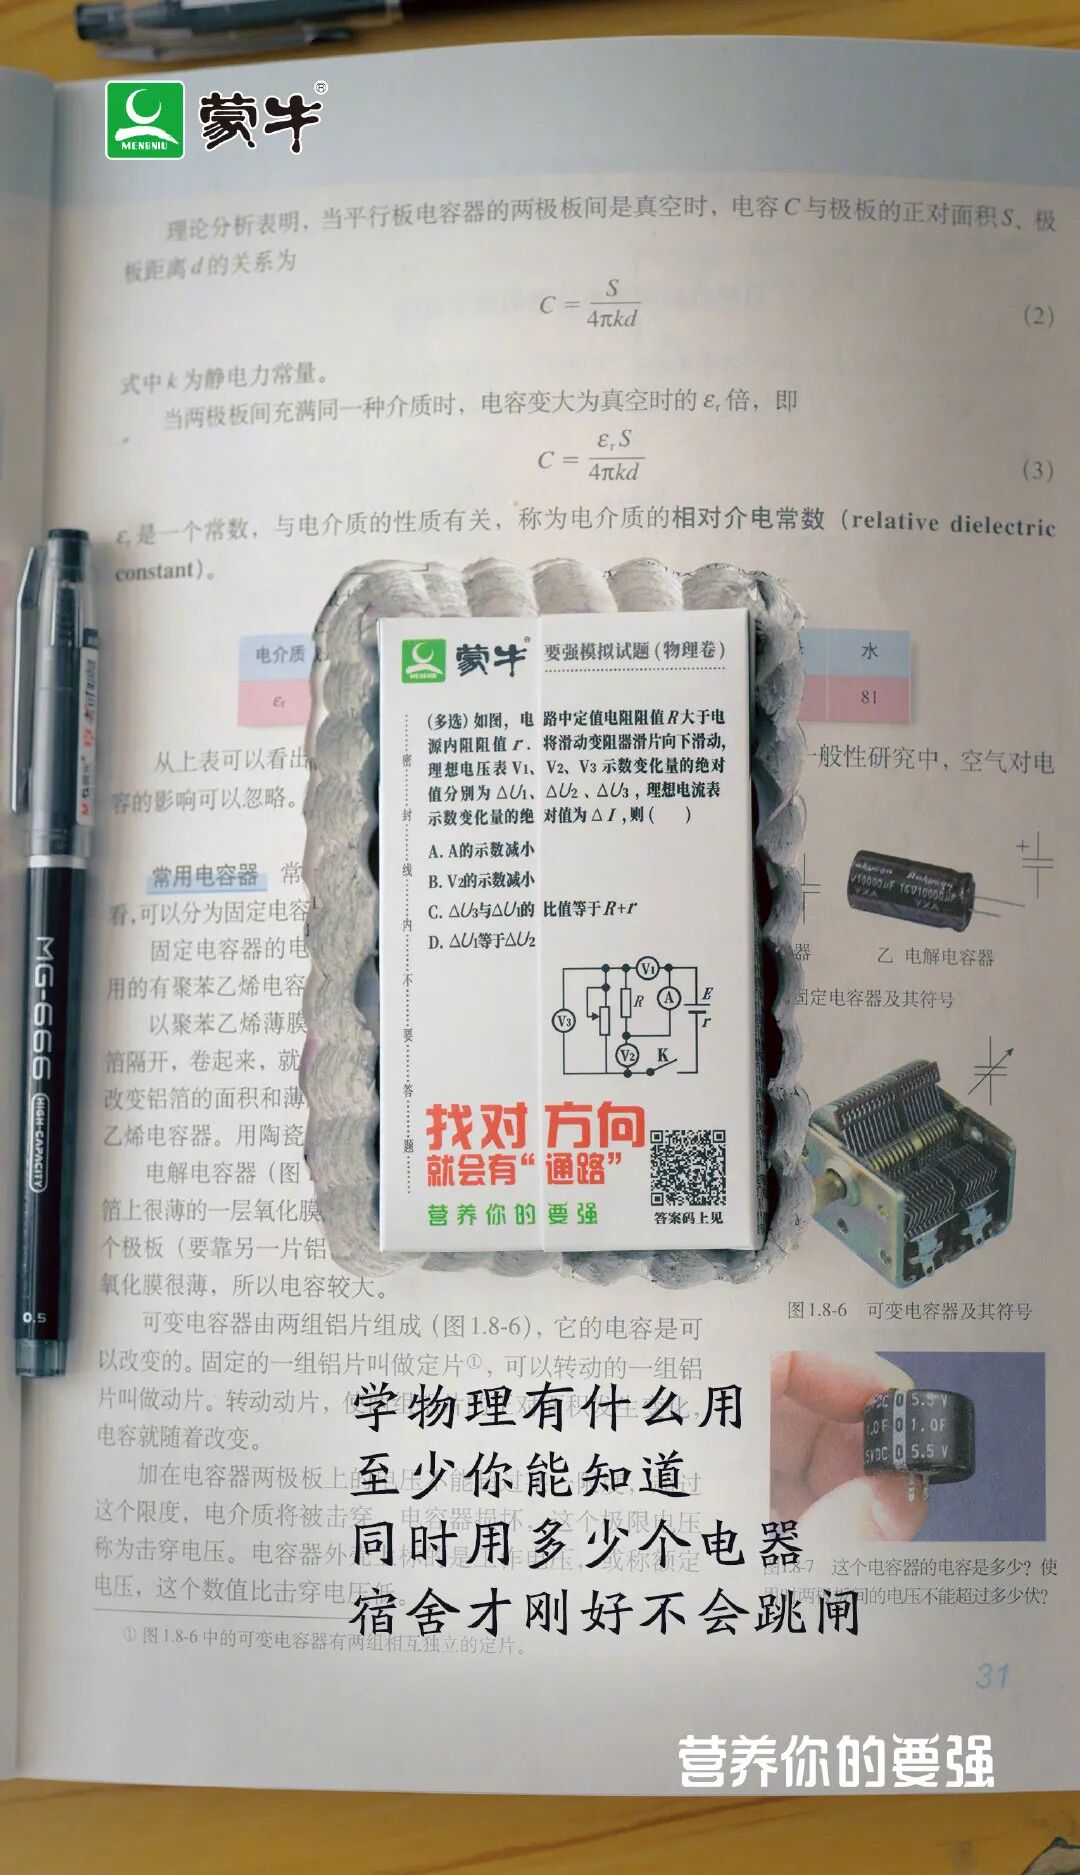 MENGNIU 蒙牛®
理论分析表明，当平行板电容器的两极板间是真空时，电容C与极板的正对面积S、极
板距离d的关系为
C = S/4πkd (2)
式中k为静电力常量。
当两极板间充满同一种介质时，电容变大为真空时的εr倍，即
C = εrS/4πkd (3)
εr是一个常数，与电介质的性质有关，称为电介质的相对介电常数（relative dielectric
constant）。
电介质
水
εr
81
从上表可以看出
一般性研究中，空气对电
容的影响可以忽略。
常用电容器 常
看，可以分为固定电容
固定电容器的电
用的有聚苯乙烯电容
以聚苯乙烯薄膜
箔隔开，卷起来，就
改变铝箔的面积和薄
乙烯电容器。用陶瓷
电解电容器（图
箔上很薄的一层氧化膜
个极板（要靠另一片铝
氧化膜很薄，所以电容较大。
可变电容器由两组铝片组成（图1.8-6），它的电容是可
以改变的。固定的一组铝片叫做定片①，可以转动的一组铝
片叫做动片。转动动片，使
电容就随着改变。
加在电容器两极板上的电压不能超过
这个限度，电介质将被击穿，电容器损坏，这个极限电压
称为击穿电压。电容器外壳上标的是工作电压，或称额定
电压，这个数值比击穿电压低。
① 图1.8-6中的可变电容器有两组相互独立的定片。
MENGNIU 蒙牛® 要强模拟试题（物理卷）
（多选）如图，电路中定值电阻阻值R大于电
源内阻阻值r．将滑动变阻器滑片向下滑动，
理想电压表V1、V2、V3示数变化量的绝对
值分别为△U1、△U2、△U3，理想电流表
示数变化量的绝对值为△I，则（ ）
A. A的示数减小
B. V2的示数减小
C. △U3与△U1的比值等于R+r
D. △U1等于△U2
密封线内不要答题
V1
V3
R
A
E
r
V2
K
找对方向
就会有“通路”
营养你的要强
答案码上见
Rubycon
10000μF 16V
YXA
器
乙 电解电容器
固定电容器及其符号
图1.8-6 可变电容器及其符号
5.5 V
1.0F
5.5 V
图1.8-7 这个电容器的电容是多少？使
用时两极板间的电压不能超过多少伏？
31
MG-666
HIGH-CAPACITY
0.5
学物理有什么用
至少你能知道
同时用多少个电器
宿舍才刚好不会跳闸
营养你的要强